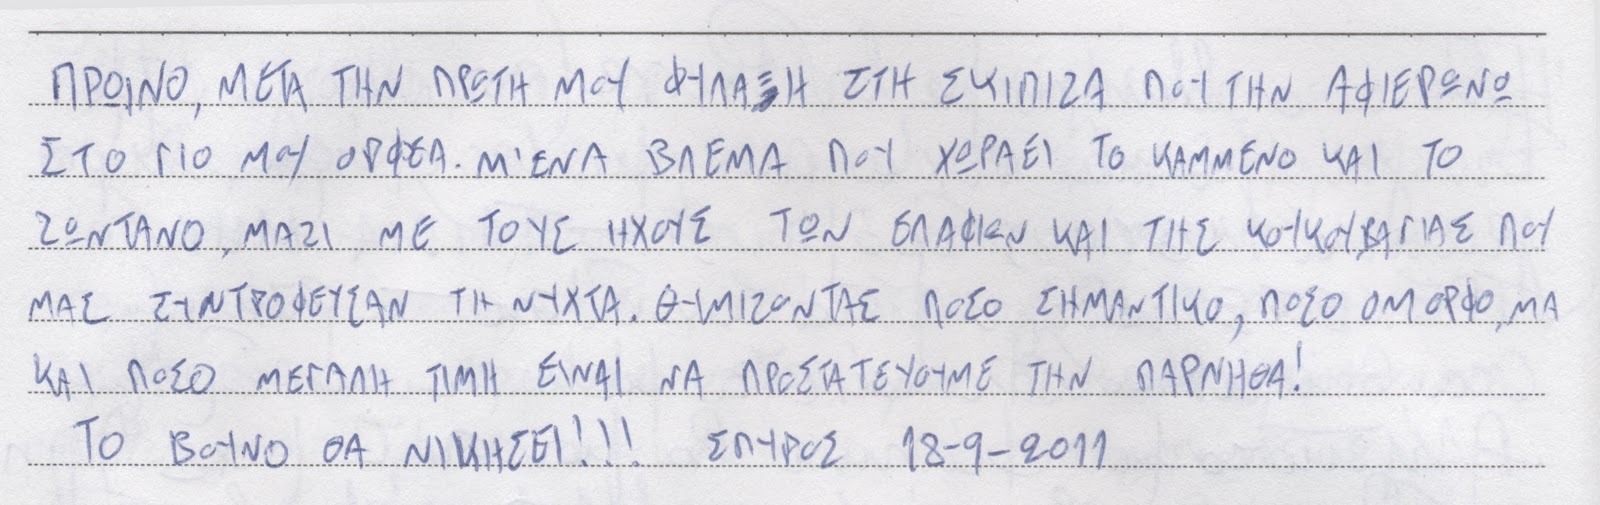 ΠΡΩΙΝΟ, ΜΕΤΑ ΤΗΝ ΠΡΩΤΗ ΜΟΥ ΦΥΛΑΞΗ ΣΤΗ ΣΚΙΠΙΖΑ ΠΟΥ ΤΗΝ ΑΦΙΕΡΩΝΩ
ΣΤΟ ΓΙΟ ΜΟΥ ΟΡΦΕΑ. Μ'ΕΝΑ ΒΛΕΜΑ ΠΟΥ ΧΩΡΑΕΙ ΤΟ ΚΑΜΜΕΝΟ ΚΑΙ ΤΟ
ΖΩΝΤΑΝΟ, ΜΑΖΙ ΜΕ ΤΟΥΣ ΗΧΟΥΣ ΤΩΝ ΕΛΑΦΙΩΝ ΚΑΙ ΤΗΣ ΚΟΥΚΟΥΒΑΓΙΑΣ ΠΟΥ
ΜΑΣ ΣΥΝΤΡΟΦΕΥΣΑΝ ΤΗ ΝΥΧΤΑ. ΘΥΜΙΖΟΝΤΑΣ ΠΟΣΟ ΣΗΜΑΝΤΙΚΟ, ΠΟΣΟ ΟΜΟΡΦΟ, ΜΑ
ΚΑΙ ΠΟΣΟ ΜΕΓΑΛΗ ΤΙΜΗ ΕΙΝΑΙ ΝΑ ΠΡΟΣΤΑΤΕΥΟΥΜΕ ΤΗΝ ΠΑΡΝΗΘΑ!
ΤΟ ΒΟΥΝΟ ΘΑ ΝΙΚΗΣΕΙ!!! ΣΠΥΡΟΣ 18-9-2011